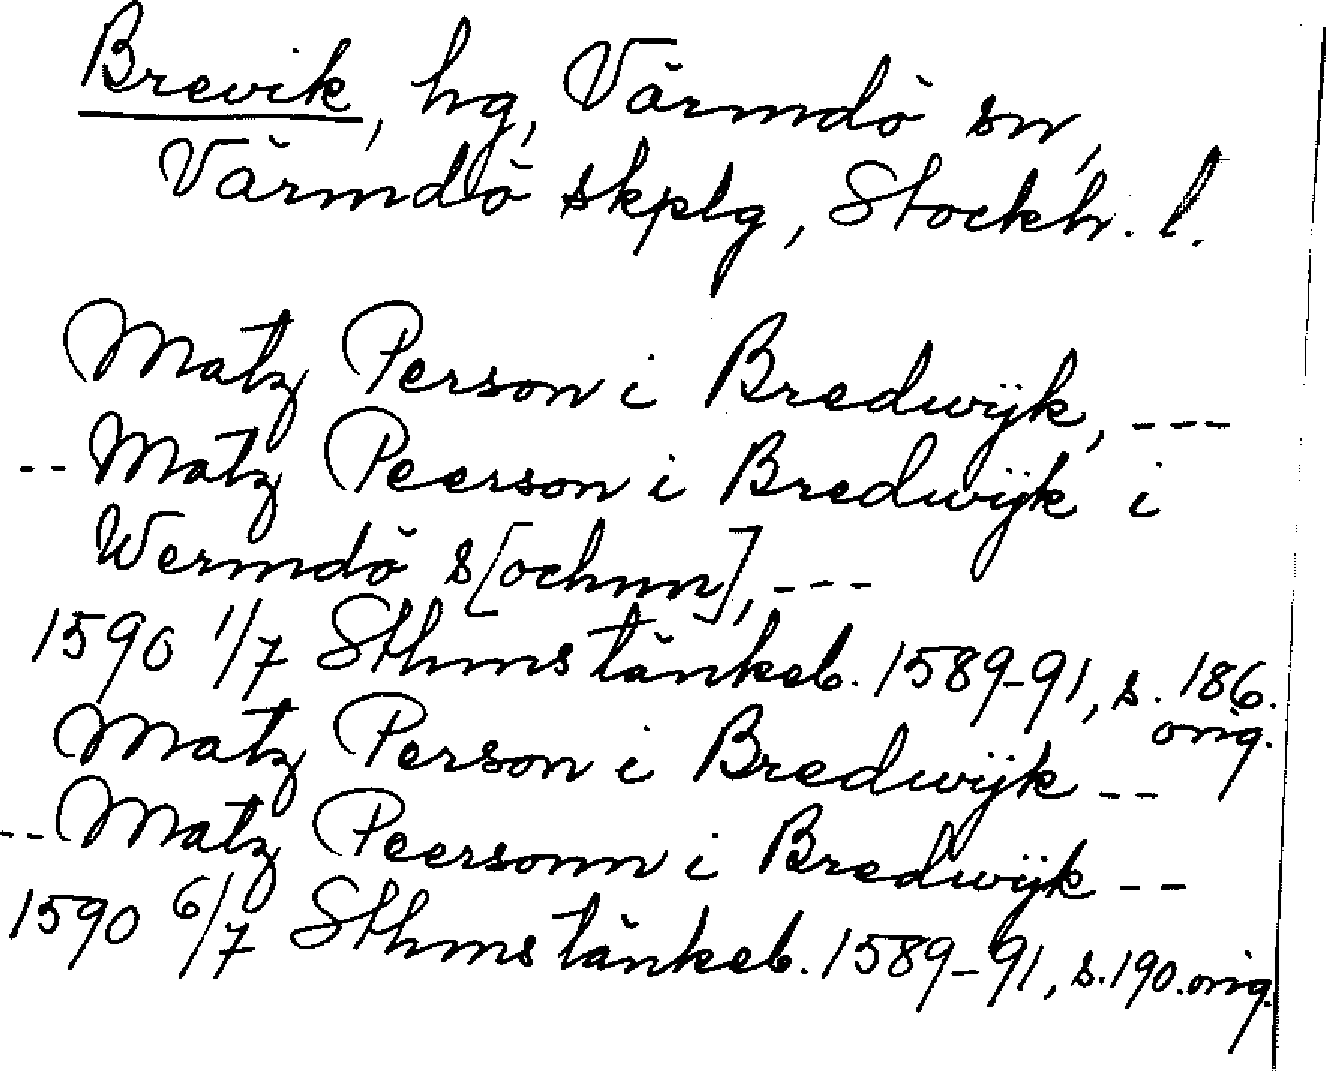 Brevik, hg, Värmdö sn,
Värmdö skplg, Stockh. l.
Matz Person i Bredwijk, ---
-- Matz Peerson i Bredwijk i
Wermdö s[ochnn], ---
1590 1/7 Sthms tänkeb. 1589-91, s. 186.
orig.
Matz Person i Bredwijk --
-- Matz Peersonn i Bredwijk --
1590 6/7 Sthms tänkeb. 1589-91, s. 190. orig.